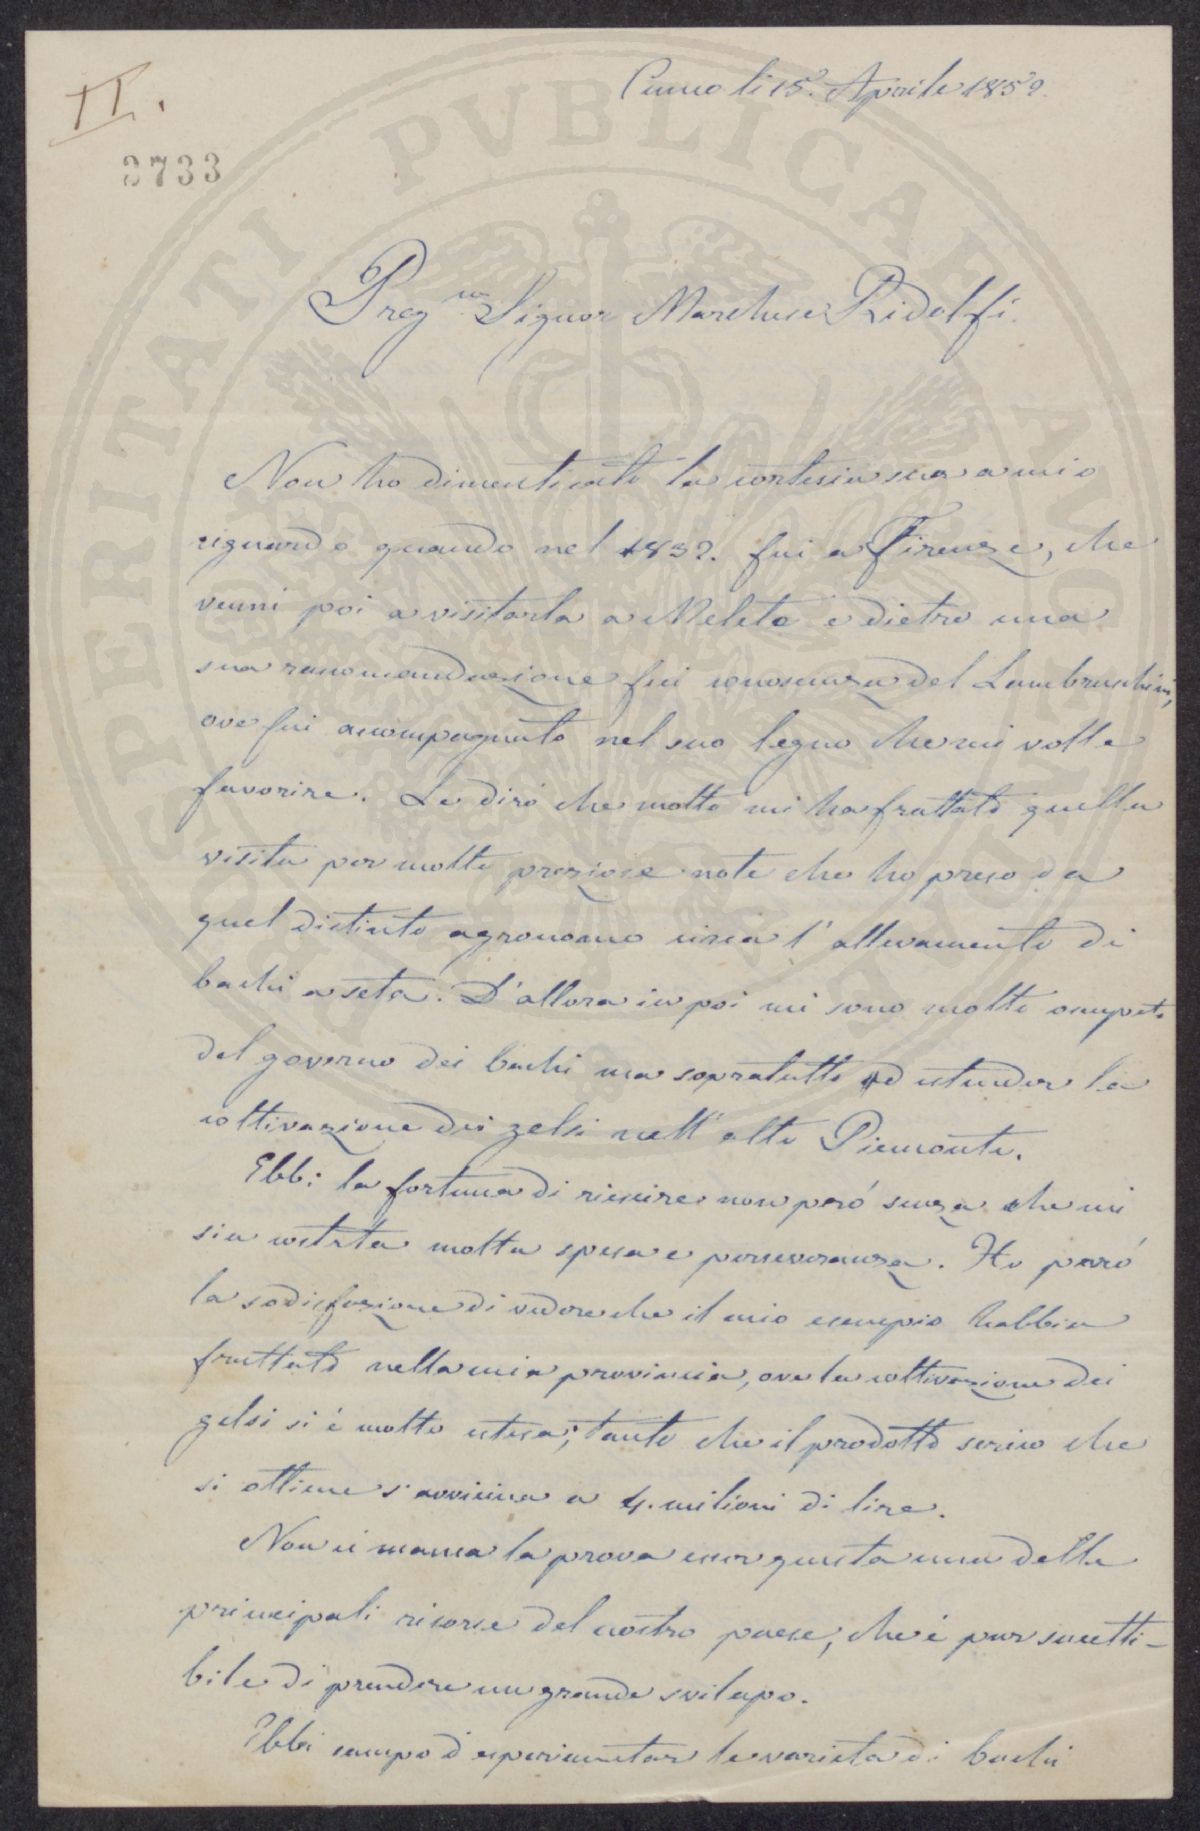 II.
Cuneo li 15. Aprile 1859.
3733
Preg.mo Signor Marchese Ridolfi.
Non ho dimenticato la cortesia sua a mio
riguardo quando nel 1832. fui a Firenze, che
venni poi a visitarla a Meleto e dietro una
sua racomandazione feci conoscenza del Lambruschini,
ove fui acompagnato nel suo legno che mi volle
favorire. Le dirò che molto mi ha fruttato quella
visita per molte preziose note che ho preso da
quel distinto agronomo circa l'allevamento di
bachi a seta. D'allora in poi mi sono molto ocupato
del governo dei bachi ma sopratutto ad estender la
coltivazione dei gelsi nell'alto Piemonte.
Ebbi la fortuna di riescire non però senza che mi
sia costata molta spesa e perseveranza. Ho però
la sodisfazione di vedere che il mio esempio habbia
fruttato nella mia provincia, ove la coltivazione dei
gelsi si è molto estesa, tanto che il prodotto serico che
si ottiene s'avvicina a 4. milioni di lire.
Non ci manca la prova esser questa una delle
principali risorse del nostro paese, che è pur sucetti-
bile di prendere un grande svilupo.
Ebbi campo d'esperimentar le varietà di bachi
PUBLICAE